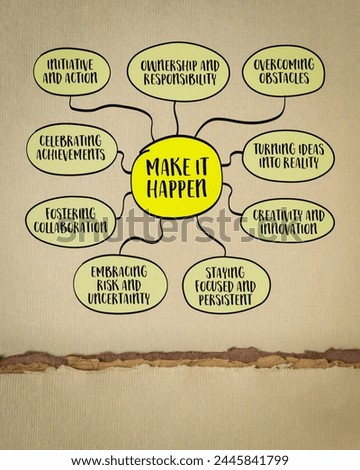 INITIATIVE
AND ACTION
OWNERSHIP AND
RESPONSIBILITY
OVERCOMING
OBSTACLES
CELEBRATING
ACHIEVEMENTS
MAKE IT
HAPPEN
TURNING IDEAS
INTO REALITY
FOSTERING
COLLABORATION
CREATIVITY AND
INNOVATION
EMBRACING
RISK AND
UNCERTAINTY
STAYING
FOCUSED AND
PERSISTENT
shutterstock
IMAGE ID: 2445841799
www.shutterstock.com